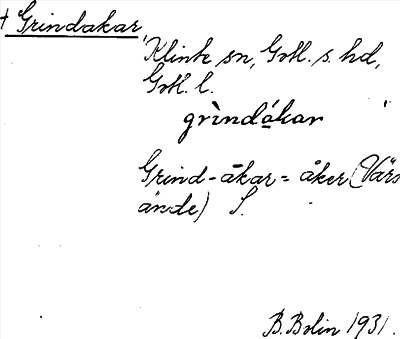 † Grindakar
Klinte sn, Gotl. s. hd,
Gotl. l.
grìndákar
Grind-åkar = åker (Värs
ände) S.
B. Bolin 1931.